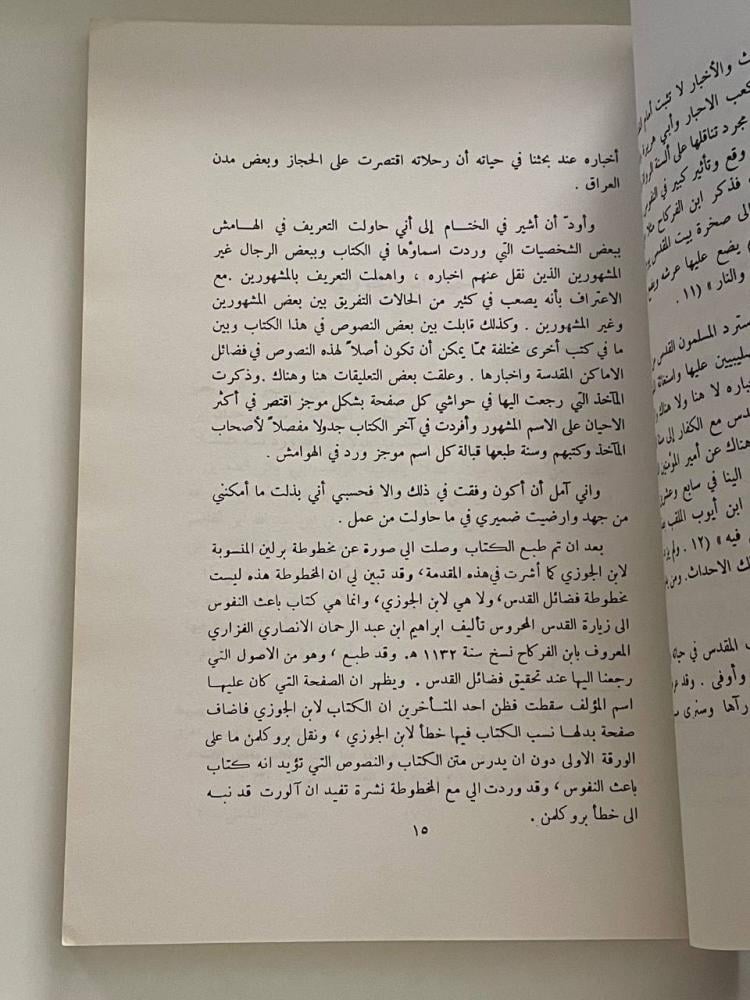 أخباره عند بحثنا في حياته أن رحلاته اقتصرت على الحجاز وبعض مدن
العراق .
وأودّ أن أشير في الختام إلى أني حاولت التعريف في الهامش
ببعض الشخصيات التي وردت اسماؤها في الكتاب وببعض الرجال غير
المشهورين الذين نقل عنهم اخباره ، واهملت التعريف بالمشهورين .مع
الاعتراف بأنه يصعب في كثير من الحالات التفريق بين بعض المشهورين
وغير المشهورين . وكذلك قابلت بين بعض النصوص في هذا الكتاب وبين
ما في كتب أخرى مختلفة ممّا يمكن أن تكون أصلاً لهذه النصوص في فضائل
الاماكن المقدسة واخبارها . وعلقت بعض التعليقات هنا وهناك .وذكرت
المآخذ التي رجعت اليها في حواشي كل صفحة بشكل موجز اقتصر في أكثر
الاحيان على الاسم المشهور وأفردت في آخر الكتاب جدولا مفصلاً لأصحاب
المآخذ وكتبهم وسنة طبعها قبالة كل اسم موجز ورد في الهوامش .
واني آمل أن أكون وفقت في ذلك والا فحسبي أني بذلت ما أمكنني
من جهد وارضيت ضميري في ما حاولت من عمل .
بعد ان تم طبع الكتاب وصلت الي صورة عن مخطوطة برلين المنسوبة
لابن الجوزي كما أشرت في هذه المقدمة، وقد تبين لي ان المخطوطة هذه ليست
مخطوطة فضائل القدس، ولا هي لابن الجوزي، وانما هي كتاب باعث النفوس
الى زيارة القدس المحروس تأليف ابراهيم ابن عبد الرحمان الانصاري الفزاري
المعروف بابن الفركاح نسخ سنة ١١٣٢ هـ. وقد طبع ، وهو من الاصول التي
رجعنا اليها عند تحقيق فضائل القدس . ويظهر ان الصفحة التي كان عليها
اسم المؤلف سقطت فظن احد المتأخرين ان الكتاب لابن الجوزي فاضاف
صفحة بدلها نسب الكتاب فيها خطأ لابن الجوزي ، ونقل بروكلمن ما على
الورقة الاولى دون ان يدرس متن الكتاب والنصوص التي تؤيد انه كتاب
باعث النفوس، وقد وردت الي مع المخطوطة نشرة تفيد ان آلورت قد نبه
الى خطأ بروكلمن .
١٥
ث والأخبار لا تثبت أمام
كعب الاحبار وأبي
مجرد تناقلها على ألسنة
وقع وتأثير كبير في النفوس
فذكر ابن الفركاح
الى صخرة بيت المقدس
يضع عليها عرشه
والنار » (١١ .
سترد المسلمون القدس
صليبيين عليها
خباره لا هنا ولا هناك
قدس مع الكفار
هناك عن أمير
الينا في سابع
ابن أيوب الملقب
فيه » (١٢ .
ك الاحداث.
المقدس في
وأوفى .
رآها وسنرى